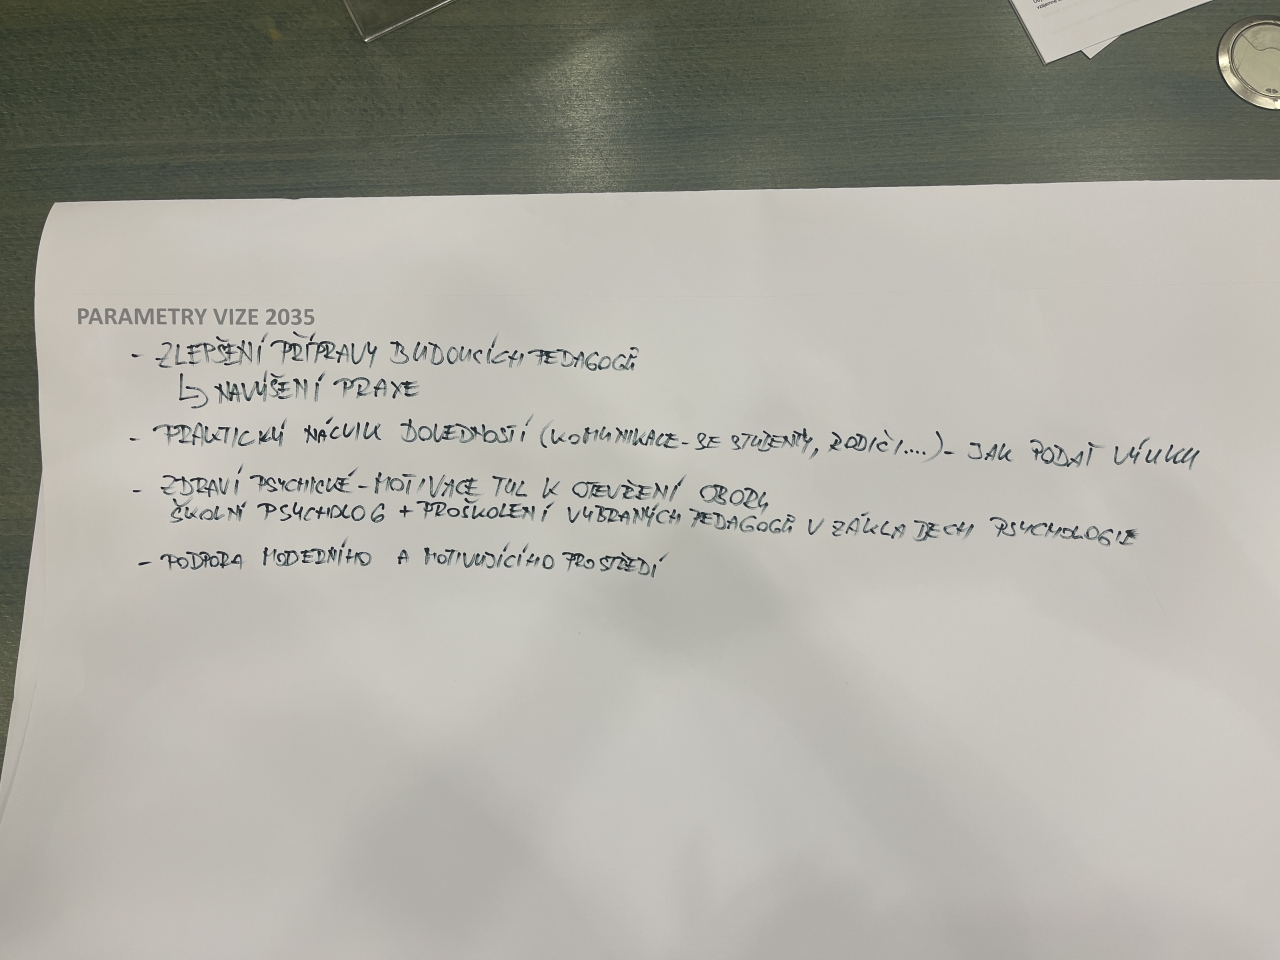 PARAMETRY VIZE 2035
- ZLEPŠENÍ PŘÍPRAVY BUDOUCÍCH PEDAGOGŮ
↳ NAVÝŠENÍ PRAXE
- PRAKTICKÝ NÁCVIK DOVEDNOSTÍ (KOMUNIKACE - SE STUDENTY, RODIČI....) - JAK PODAT VÝUKU
- ZDRAVÍ PSYCHICKÉ - MOTIVACE TUL K OTEVŘENÍ OBORU
ŠKOLNÍ PSYCHOLOG + PROŠKOLENÍ VYBRANÝCH PEDAGOGŮ V ZÁKLADECH PSYCHOLOGIE
- PODPORA MODERNÍHO A MOTIVUJÍCÍHO PROSTŘEDÍ